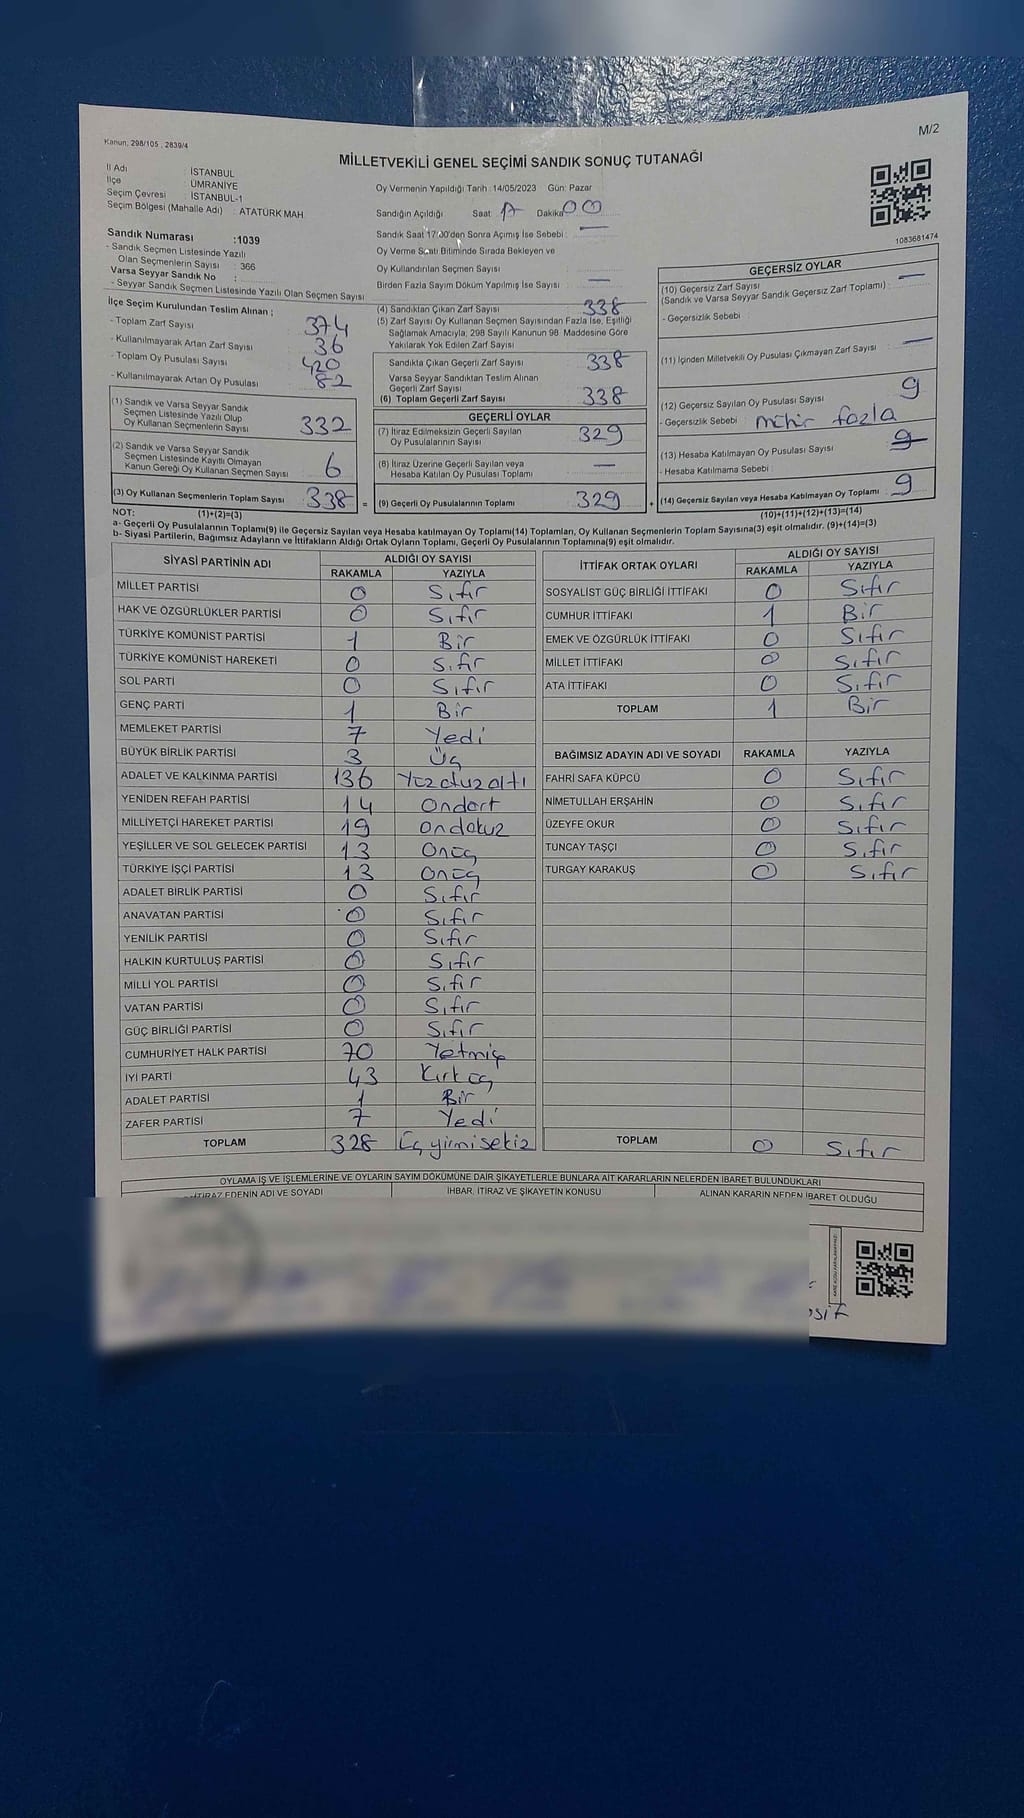 M/2
Kanun, 298/105 , 2839/4
MİLLETVEKİLİ GENEL SEÇİMİ SANDIK SONUÇ TUTANAĞI
İl Adı : İSTANBUL
İlçe : ÜMRANİYE
Seçim Çevresi : İSTANBUL-1
Seçim Bölgesi (Mahalle Adı) : ATATÜRK MAH.
Sandık Numarası :1039
- Sandık Seçmen Listesinde Yazılı
Olan Seçmenlerin Sayısı : 366
Varsa Seyyar Sandık No :
- Seyyar Sandık Seçmen Listesinde Yazılı Olan Seçmen Sayısı
Oy Vermenin Yapıldığı Tarih :14/05/2023 Gün: Pazar
Sandığın Açıldığı Saat 17 Dakika 00
Sandık Saat 17:00'den Sonra Açımış İse Sebebi : —
Oy Verme Saati Bitiminde Sırada Bekleyen ve
Oy Kullandırılan Seçmen Sayısı
Birden Fazla Sayım Döküm Yapılmış İse Sayısı : —
1083681474
İlçe Seçim Kurulundan Teslim Alınan ;
- Toplam Zarf Sayısı 374
- Kullanılmayarak Artan Zarf Sayısı 36
- Toplam Oy Pusulası Sayısı 420
- Kullanılmayarak Artan Oy Pusulası 82
(1) Sandık ve Varsa Seyyar Sandık
Seçmen Listesinde Yazılı Olup
Oy Kullanan Seçmenlerin Sayısı 332
(2) Sandık ve Varsa Seyyar Sandık
Seçmen Listesinde Kayıtlı Olmayan
Kanun Gereği Oy Kullanan Seçmen Sayısı 6
(3) Oy Kullanan Seçmenlerin Toplam Sayısı 338 =
(1)+(2)=(3)
(4) Sandıktan Çıkan Zarf Sayısı 338
(5) Zarf Sayısı Oy Kullanan Seçmen Sayısından Fazla İse, Eşitliği
Sağlamak Amacıyla; 298 Sayılı Kanunun 98. Maddesine Göre
Yakılarak Yok Edilen Zarf Sayısı
Sandıkta Çıkan Geçerli Zarf Sayısı 338
Varsa Seyyar Sandıktan Teslim Alınan
Geçerli Zarf Sayısı
(6) Toplam Geçerli Zarf Sayısı 338
GEÇERLİ OYLAR
(7) İtiraz Edilmeksizin Geçerli Sayılan
Oy Pusulalarının Sayısı 329
(8) İtiraz Üzerine Geçerli Sayılan veya
Hesaba Katılan Oy Pusulası Toplamı —
(9) Geçerli Oy Pusulalarının Toplamı 329 +
GEÇERSİZ OYLAR
(10) Geçersiz Zarf Sayısı
(Sandık ve Varsa Seyyar Sandık Geçersiz Zarf Toplamı) : —
- Geçersizlik Sebebi
(11) İçinden Milletvekili Oy Pusulası Çıkmayan Zarf Sayısı : —
(12) Geçersiz Sayılan Oy Pusulası Sayısı 9
- Geçersizlik Sebebi mühür fazla
(13) Hesaba Katılmayan Oy Pusulası Sayısı 9
- Hesaba Katılmama Sebebi :
(14) Geçersiz Sayılan veya Hesaba Katılmayan Oy Toplamı : 9
(10)+(11)+(12)+(13)=(14)
NOT:
a- Geçerli Oy Pusulalarının Toplamı(9) ile Geçersiz Sayılan veya Hesaba katılmayan Oy Toplamı(14) Toplamları, Oy Kullanan Seçmenlerin Toplam Sayısına(3) eşit olmalıdır. (9)+(14)=(3)
b- Siyasi Partilerin, Bağımsız Adayların ve İttifakların Aldığı Ortak Oyların Toplamı, Geçerli Oy Pusulalarının Toplamına(9) eşit olmalıdır.
SİYASİ PARTİNİN ADI ALDIĞI OY SAYISI
RAKAMLA YAZIYLA
MİLLET PARTİSİ 0 Sıfır
HAK VE ÖZGÜRLÜKLER PARTİSİ 0 Sıfır
TÜRKİYE KOMÜNİST PARTİSİ 1 Bir
TÜRKİYE KOMÜNİST HAREKETİ 0 Sıfır
SOL PARTİ 0 Sıfır
GENÇ PARTİ 1 Bir
MEMLEKET PARTİSİ 7 Yedi
BÜYÜK BİRLİK PARTİSİ 3 Üç
ADALET VE KALKINMA PARTİSİ 136 Yüzotuzaltı
YENİDEN REFAH PARTİSİ 14 Ondört
MİLLİYETÇİ HAREKET PARTİSİ 19 Ondokuz
YEŞİLLER VE SOL GELECEK PARTİSİ 13 Onüç
TÜRKİYE İŞÇİ PARTİSİ 13 Onüç
ADALET BİRLİK PARTİSİ 0 Sıfır
ANAVATAN PARTİSİ 0 Sıfır
YENİLİK PARTİSİ 0 Sıfır
HALKIN KURTULUŞ PARTİSİ 0 Sıfır
MİLLİ YOL PARTİSİ 0 Sıfır
VATAN PARTİSİ 0 Sıfır
GÜÇ BİRLİĞİ PARTİSİ 0 Sıfır
CUMHURİYET HALK PARTİSİ 70 Yetmiş
İYİ PARTİ 43 Kırküç
ADALET PARTİSİ 1 Bir
ZAFER PARTİSİ 7 Yedi
TOPLAM 328 Üçyirmisekiz
İTTİFAK ORTAK OYLARI ALDIĞI OY SAYISI
RAKAMLA YAZIYLA
SOSYALİST GÜÇ BİRLİĞİ İTTİFAKI 0 Sıfır
CUMHUR İTTİFAKI 1 Bir
EMEK VE ÖZGÜRLÜK İTTİFAKI 0 Sıfır
MİLLET İTTİFAKI 0 Sıfır
ATA İTTİFAKI 0 Sıfır
TOPLAM 1 Bir
BAĞIMSIZ ADAYIN ADI VE SOYADI RAKAMLA YAZIYLA
FAHRİ SAFA KÜPCÜ 0 Sıfır
NİMETULLAH ERŞAHİN 0 Sıfır
ÜZEYFE OKUR 0 Sıfır
TUNCAY TAŞÇI 0 Sıfır
TURGAY KARAKUŞ 0 Sıfır
TOPLAM 0 Sıfır
OYLAMA İŞ VE İŞLEMLERİNE VE OYLARIN SAYIM DÖKÜMÜNE DAİR ŞİKAYETLERLE BUNLARA AİT KARARLARIN NELERDEN İBARET BULUNDUKLARI
İTİRAZ EDENİN ADI VE SOYADI İHBAR, İTİRAZ VE ŞİKAYETİN KONUSU ALINAN KARARIN NEDEN İBARET OLDUĞU